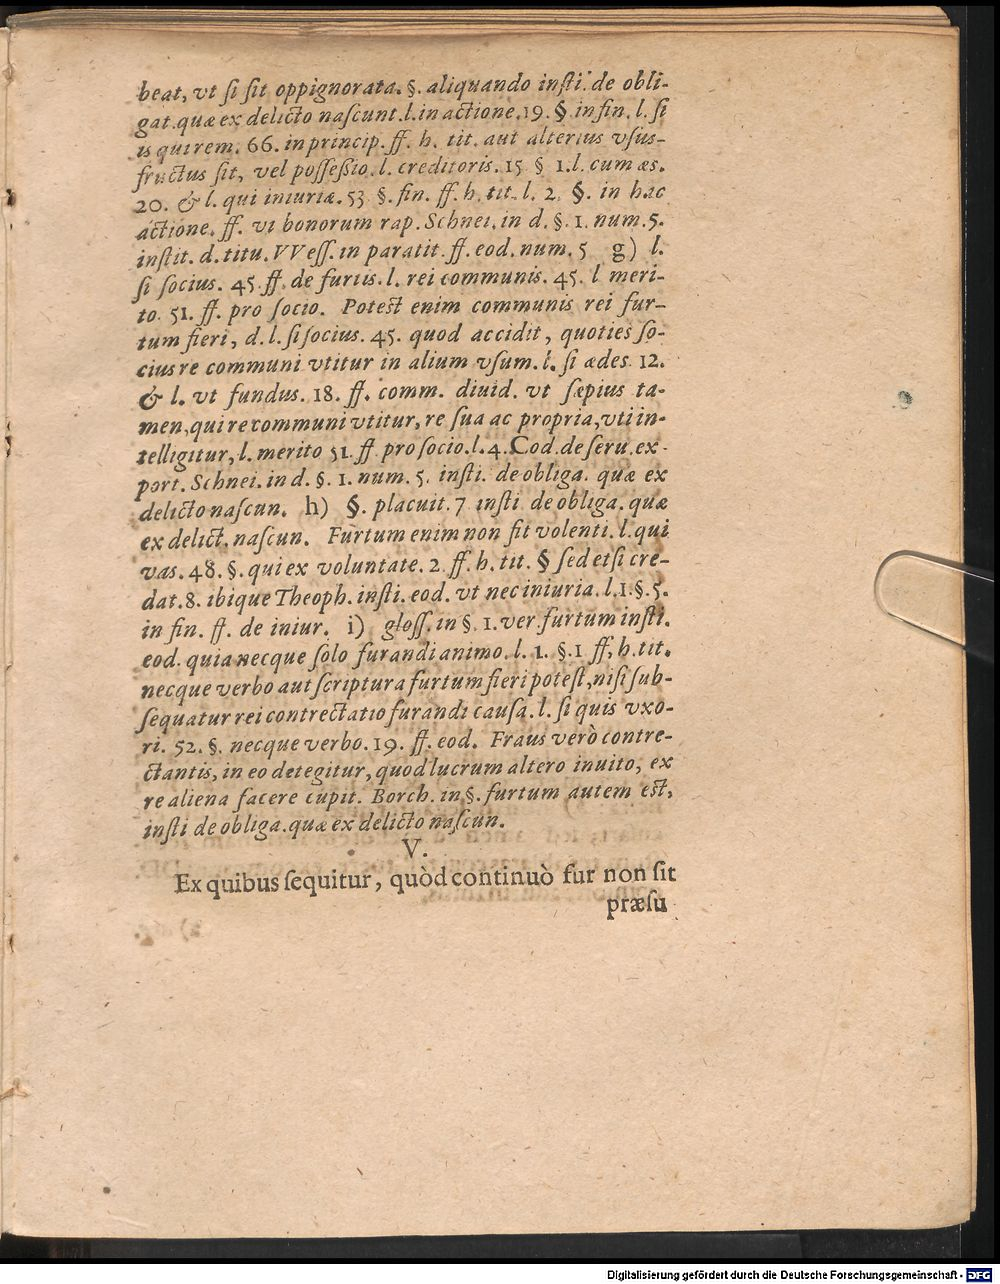 beat, vt ſi ſit oppignorata. §. aliquando inſti. de obli-
gat. quæ ex delicto naſcunt. l. in actione. 19. §. in fin. l. ſi
is qui rem. 66. in princip. ff. h. tit. aut alterius vſus-
fructus ſit, vel poſſeſsio. l. creditoris. 15 § 1. l. cum æs.
20. & l. qui iniuriæ. 53 §. fin. ff. h. tit. l. 2. §. in hac
actione. ff. vi bonorum rap. Schnei. in d. §. 1. num. 5.
inſtit. d. titu. VVeſſ. in paratit. ff. eod. num. 5 g) l.
ſi ſocius. 45. ff. de furtis. l. rei communis. 45. l meri-
to. 51. ff. pro ſocio. Poteſt enim communis rei fur-
tum fieri, d. l. ſi ſocius. 45. quod accidit, quoties ſo-
cius re communi vtitur in alium vſum. l. ſi ædes. 12.
& l. vt fundus. 18. ff. comm. diuid. vt ſæpius ta-
men, qui re communi vtitur, re ſua ac propria, vti in-
telligitur, l. merito 51. ff. pro ſocio. l. 4. Cod. de ſeru. ex-
port. Schnei. in d. §. 1. num. 5. inſti. de obliga. quæ ex
delicto naſcun. h) §. placuit. 7 inſti de obliga. quæ
ex delict. naſcun. Furtum enim non fit volenti. l. qui
vas. 48. §. qui ex voluntate. 2. ff. h. tit. § ſed etſi cre-
dat. 8. ibique Theoph. inſti. eod. vt nec iniuria. l. 1. §. 5.
in fin. ff. de iniur. i) gloſſ. in §. 1. ver. furtum inſti.
eod. quia necque ſolo furandi animo. l. 1. §. 1 ff. h. tit.
necque verbo aut ſcriptura furtum fieri poteſt, niſi ſub-
ſequatur rei contrectatio furandi cauſa. l. ſi quis vxo-
ri. 52. §. necque verbo. 19. ff. eod. Fraus verò contre-
ctantis, in eo detegitur, quod lucrum altero inuito, ex
re aliena facere cupit. Borch. in §. furtum autem eſt,
inſti de obliga. quæ ex delicto naſcun.
V.
Ex quibus ſequitur, quòd continuò fur non ſit
præſu
Digitalisierung gefördert durch die Deutsche Forschungsgemeinschaft - DFG